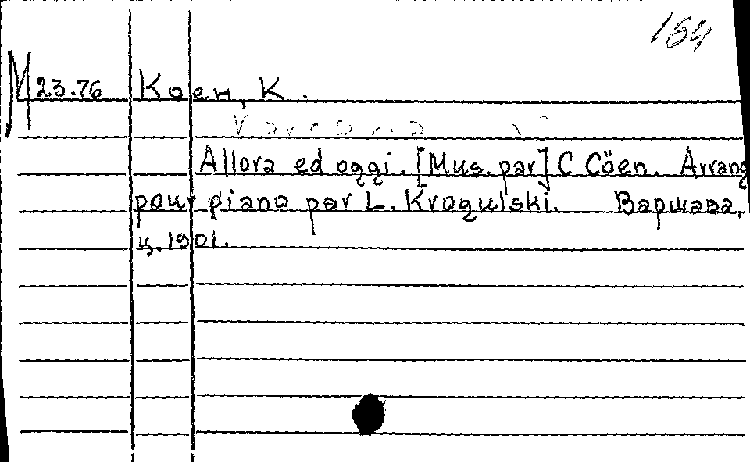 154
М 23.76 Коен, К.
Allora ed oggi. [Mus. par] C Cöen. Arrang
pour piano par L. Krogulski. Варшава,
ц. 1901.